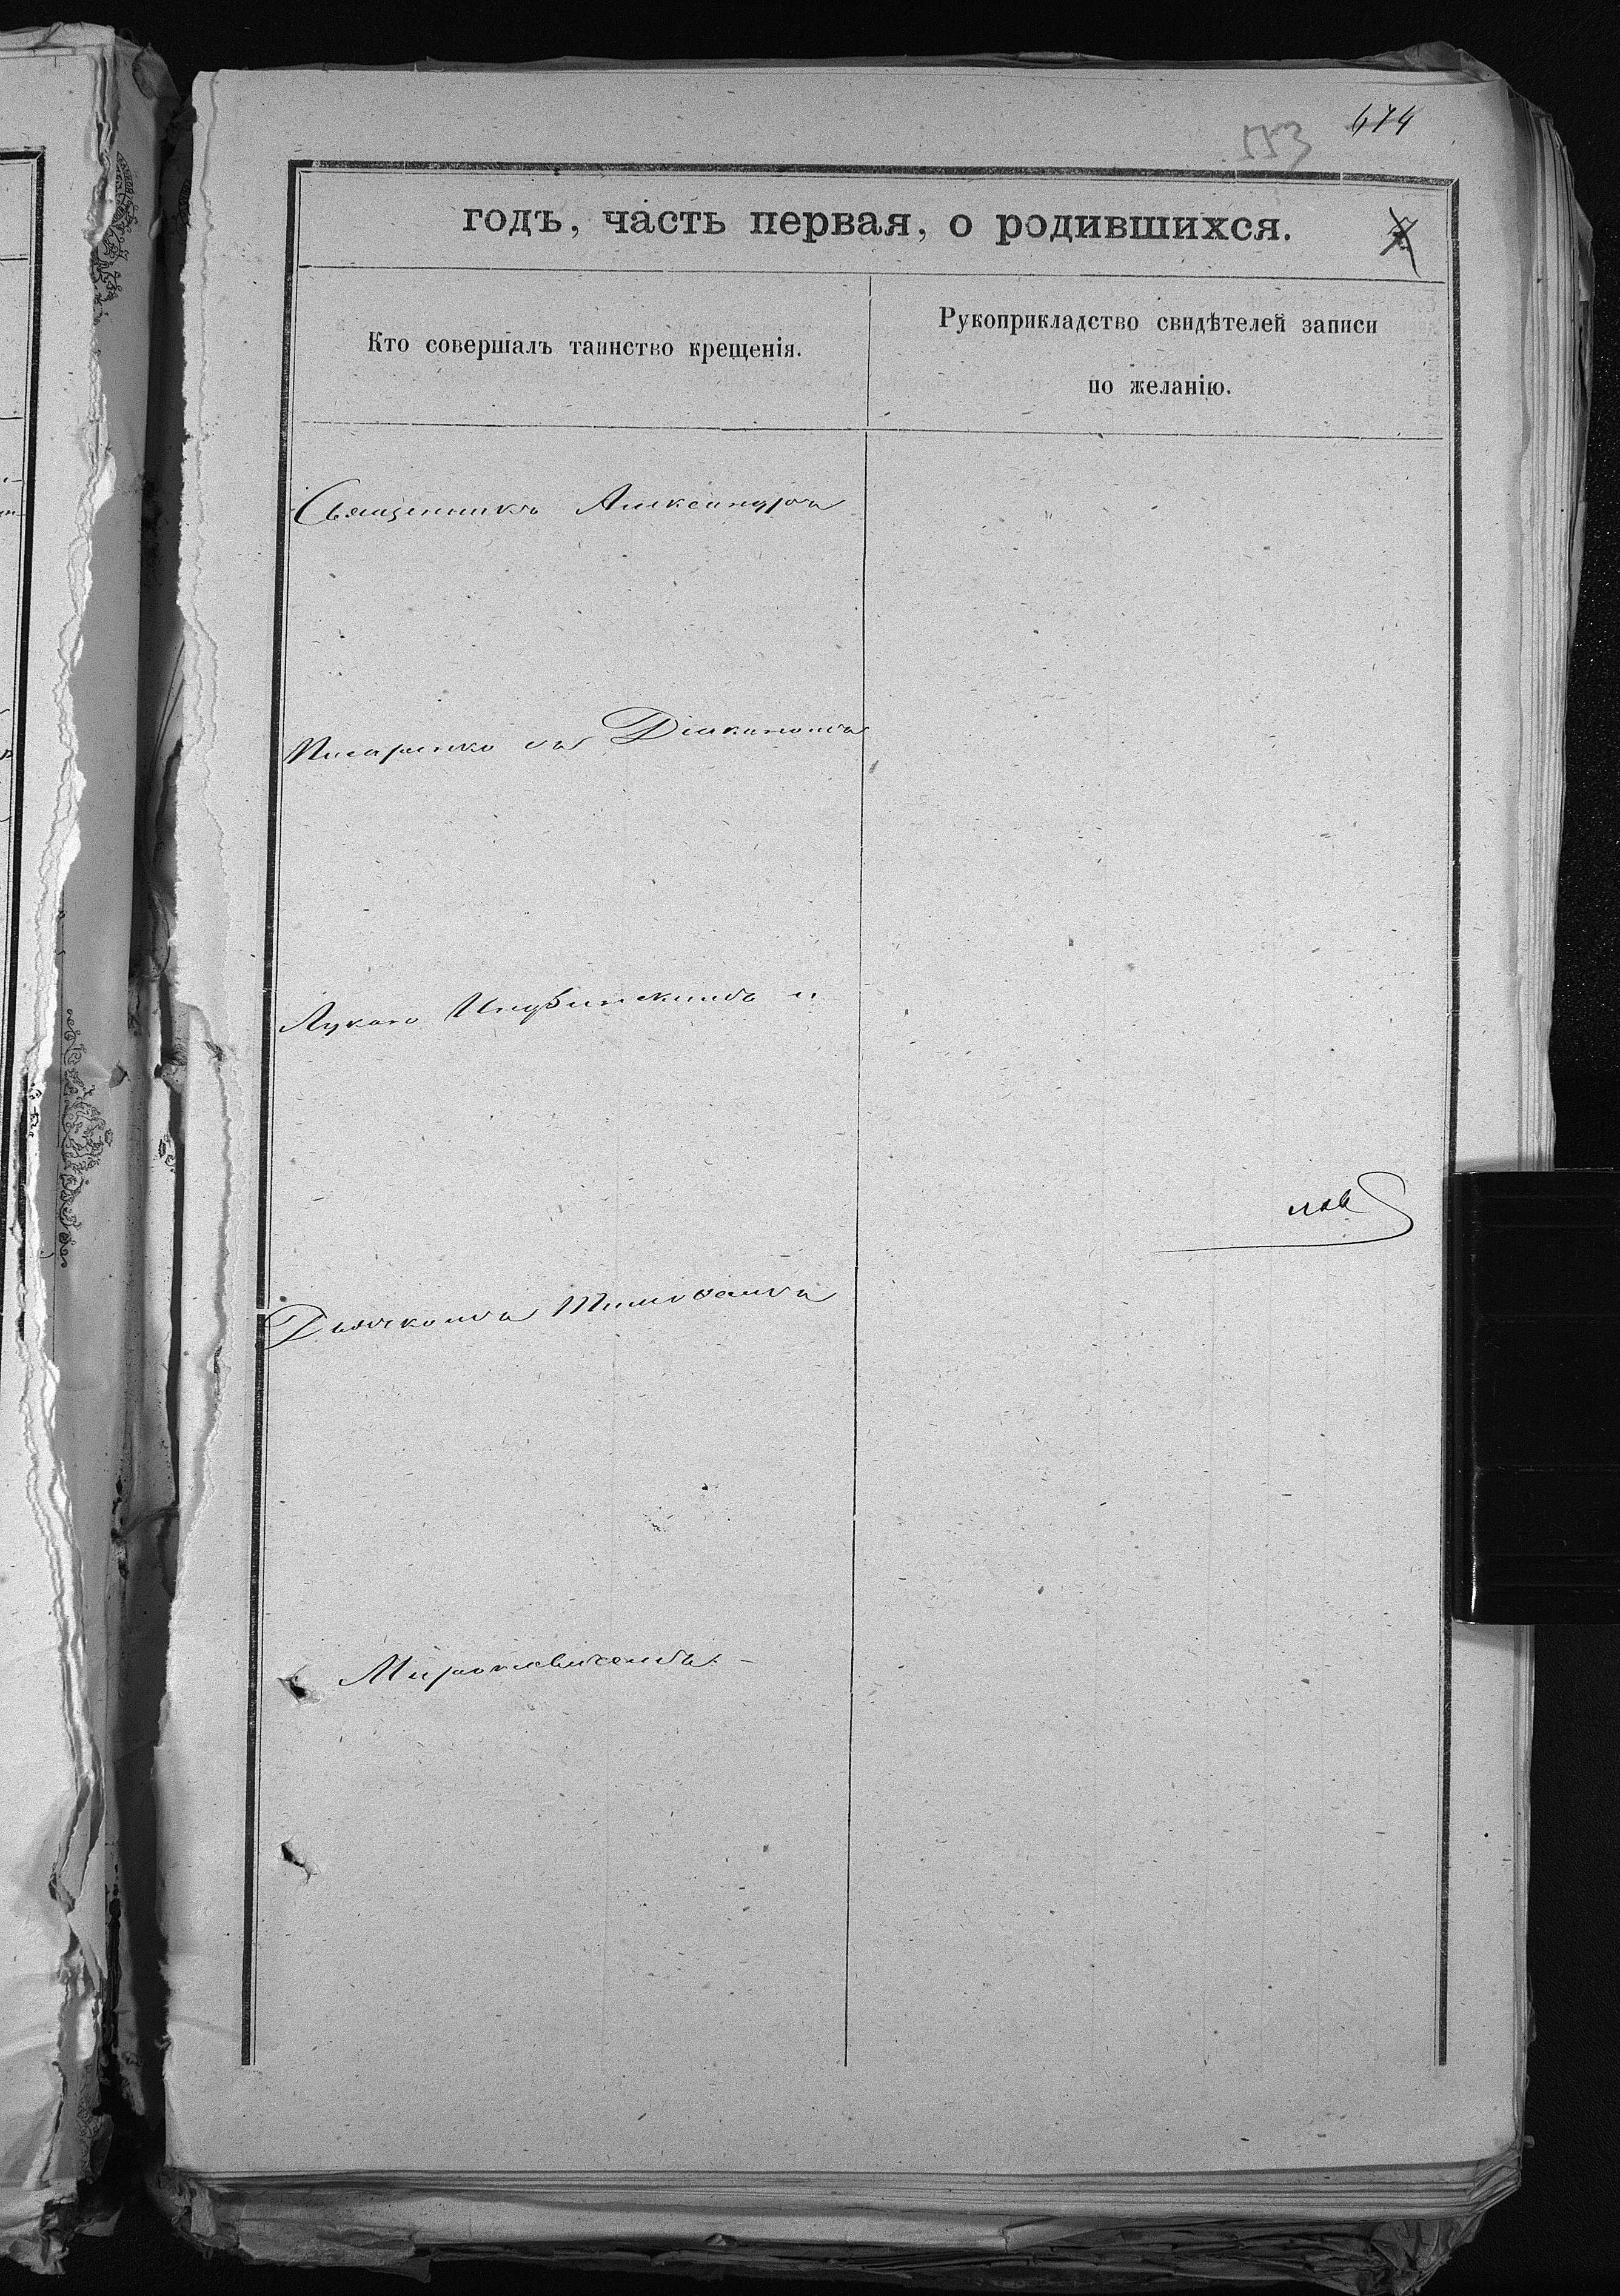 553 674
годъ, часть первая, о родившихся.
Кто совершалъ таинство крещенія.
Рукоприкладство свидѣтелей записи
по желанію.
Священникъ Александръ
Писаренко съ Діакономъ
Лукою и
Дьячкомъ Тимофеемъ
Мировичемъ.